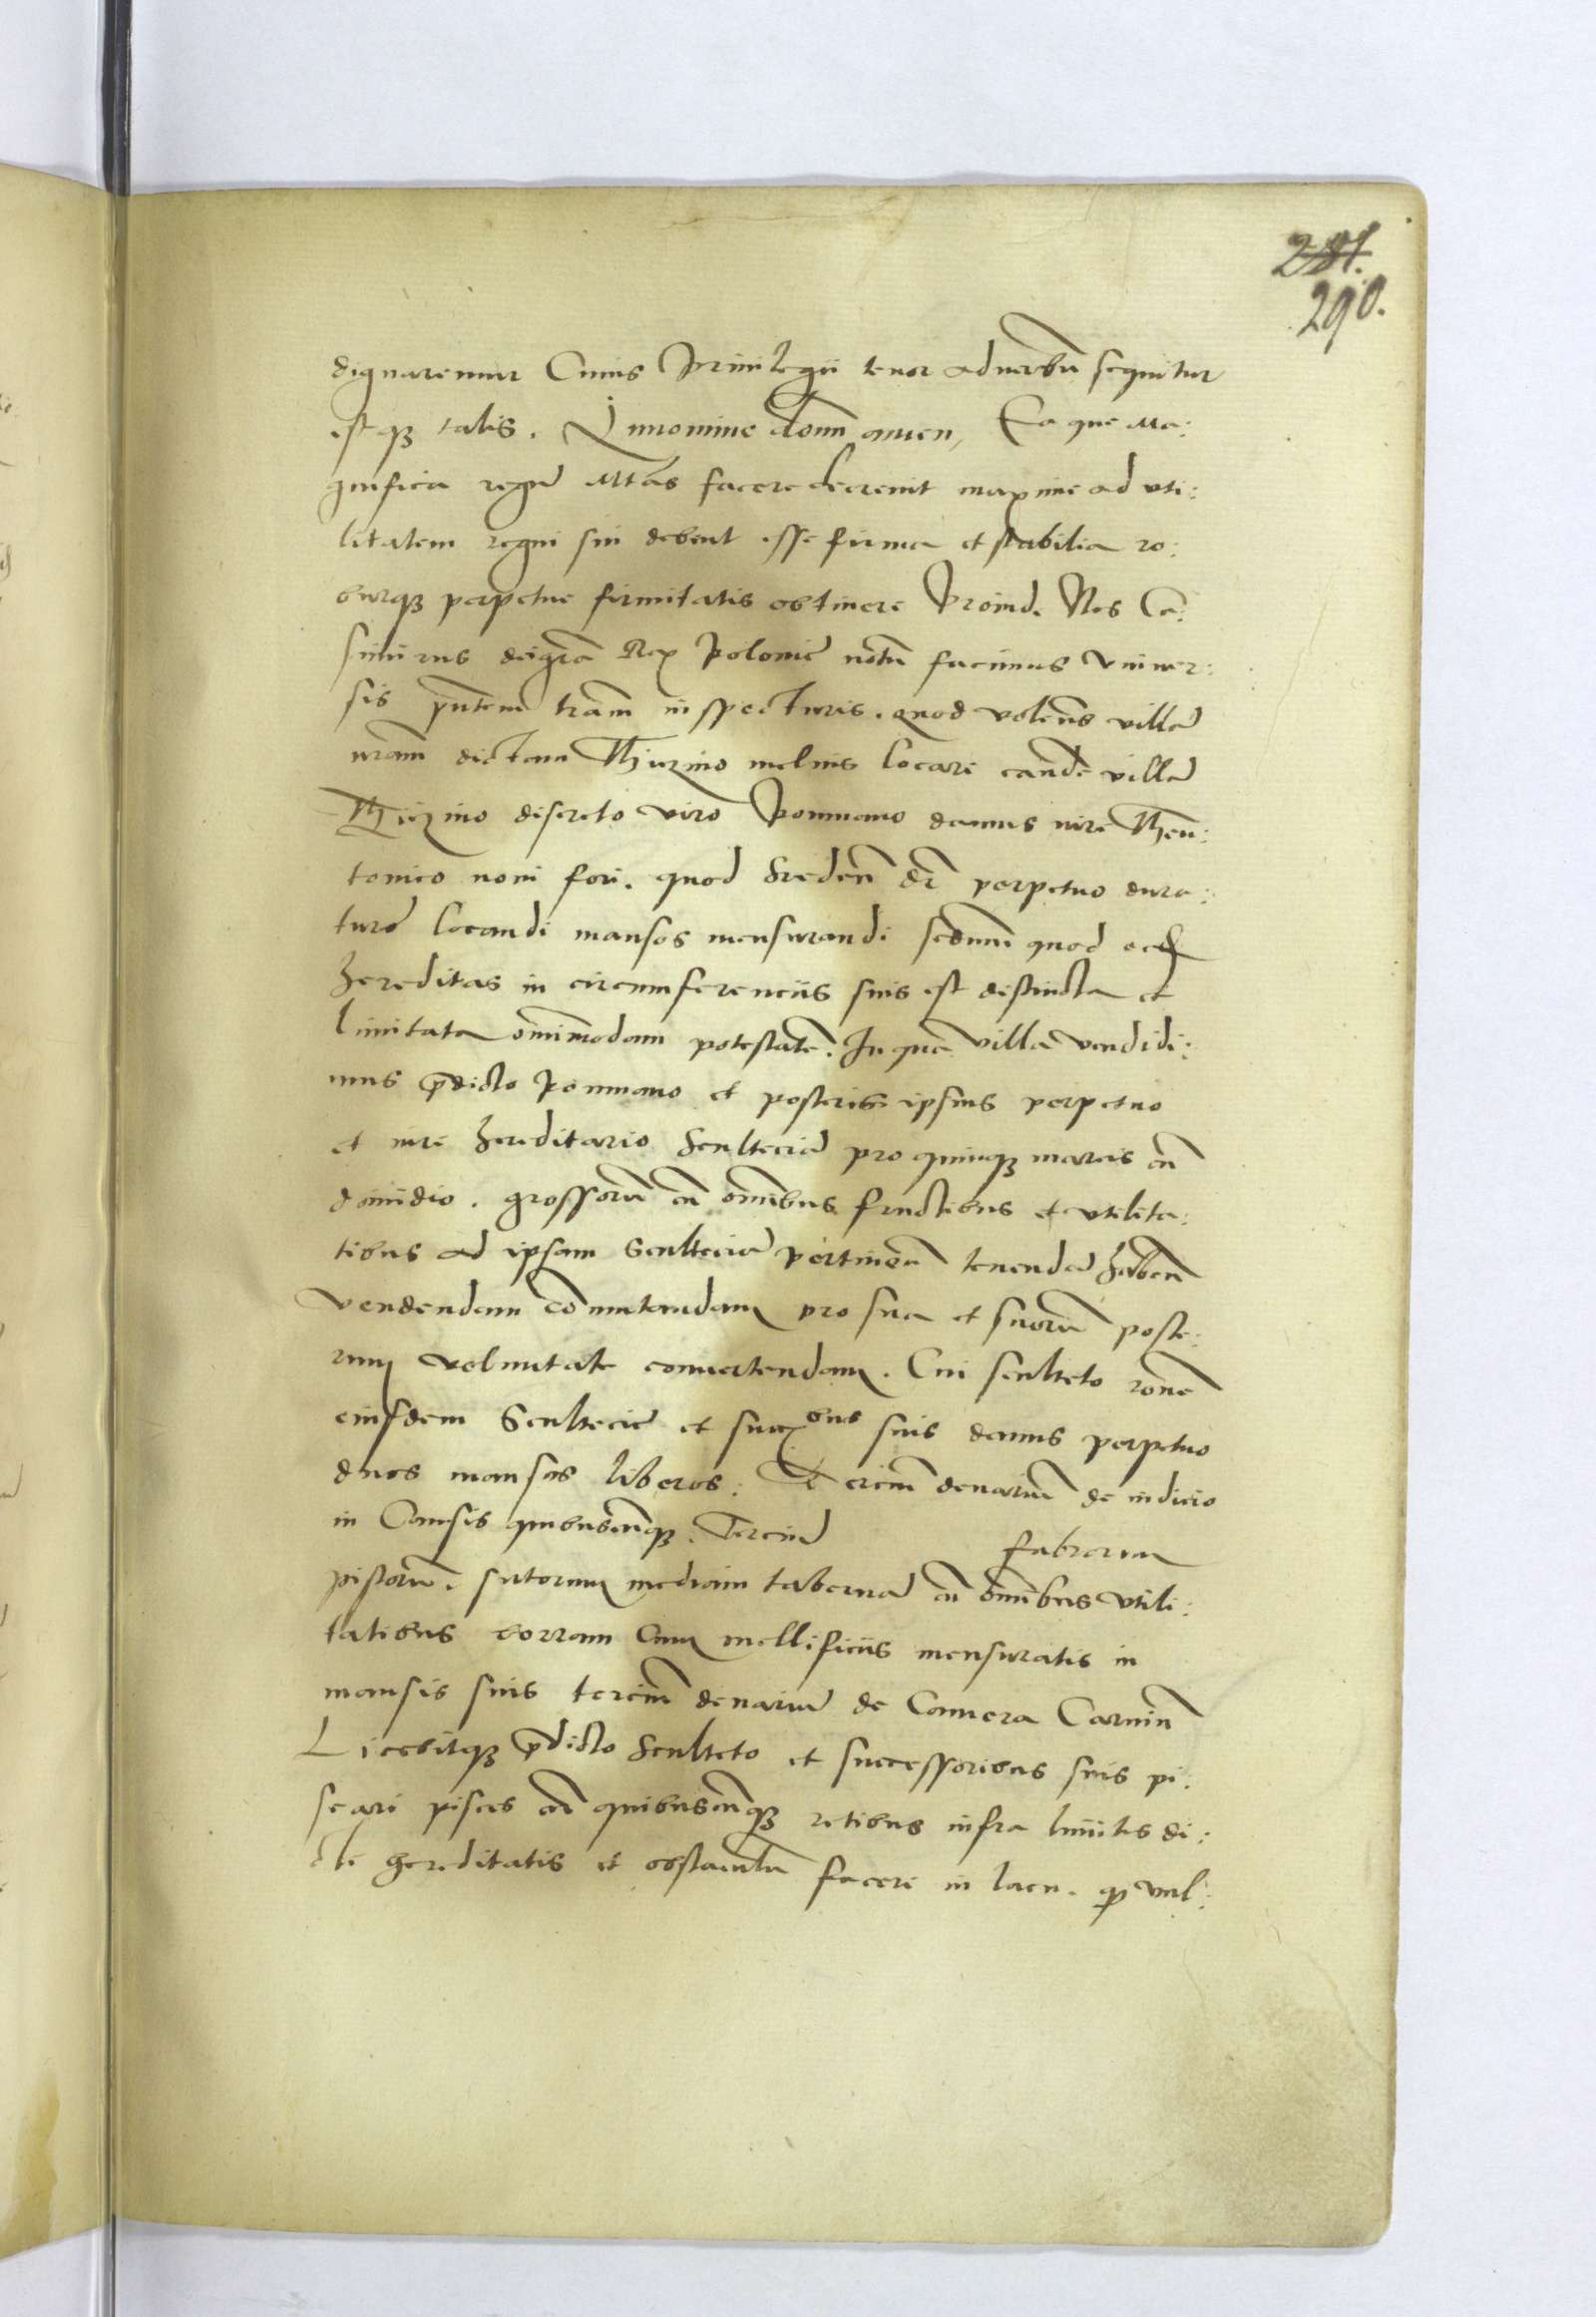 281.
290.
dignaremur Cuius Privilegii tenor adverbũ sequitur
estqꝫ talis. In nomine domĩ amen, Ea que Ma:
gnifica regũ Mtãs facere decrevit maxime ad uti:
litatem regni sui debent esse firma et stabilia ro:
burqꝫ perpetue firmitatis obtinere Proinde Nos Ca:
simirus dei grã Rex Polonie notũ facimus Univer:
sis pñtem lrãm inspecturis. quod volens villã
nrãm dictam Thurzno melius locare eandẽ villã
discreto viro Pomnano damus iure Theu:
tonico novi fori. quod Sredeñ dr̃ perpetuo dura:
turo locandi mansos mensurandi sedm̃ quod
hereditas in circumferenciis suis est distincta et
limitata om̃imodam potestatẽ. In qua villa vendidi:
mus p̃dicto Pomnano et posteris ipsius perpetuo
et iure hereditario Sculteciã pro quinqꝫ marcis cũ
dimidio. grossorũ cũ om̃ibus fructibus et utilita:
tibus ad ipsam Scultecia pertineñ tenendã habeñ
vendendam com̃utandam pro sua et suorũ poste:
rum voluntate convertendam. Cui sculteto rõne
eiusdem Scultecie et sucꝰʳⁱbus suis damus perpetuo
duos mansos liberos: Terciũ denariũ de iudicio
in Causis quibuscũqꝫ. Terciũ fabrorum
pistorũ. sutorum mediam tabernã cũ om̃ibus utili:
tatibus borram Cum mellificiis mensuratis in
mansis suis terciũ denariũ de Camera Carniũ
Licebitqꝫ p̃dicto Sculteto et successoribus suis pi:
scari pisces cũ quibuscũqꝫ retibus infra limites di:
cte hereditatis et obstaculũ facere in lacu. q̃ vul: